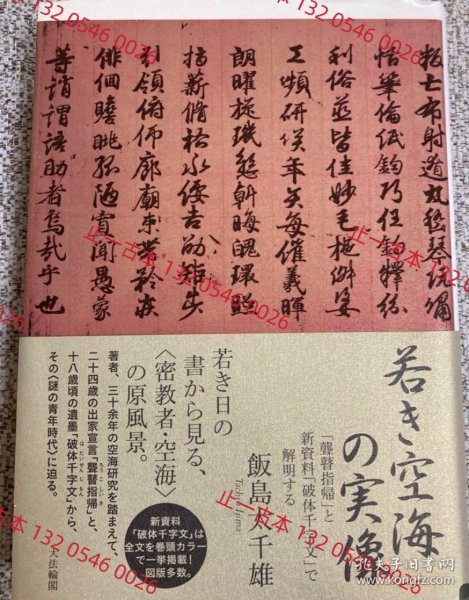 叛亡布射遼丸嵇琴阮嘯
恬筆倫紙鈞巧任釣釋紛
利俗並皆佳妙毛施淑姿
工頻研笑年矢每催義暉
朗曜璇璣懸斡晦魄環照
指薪脩祜永綏吉劭矩步
引領俯仰廊廟束帶矜莊
徘徊瞻眺孤陋寡聞愚蒙
等誚謂語助者焉哉乎也
若き空海
の実像
「聾瞽指帰」と
新資料「破体千字文」で
解明する
飯島太千雄
Tachio Iijima
若き日の
書から見る、
〈密教者・空海〉
の原風景。
著者、三十余年の空海研究を踏まえて、
二十四歳の出家宣言『聾瞽指帰』と、
十八歳頃の遺墨「破体千字文」から、
その〈謎の青年時代〉に迫る。
新資料
「破体千字文」は
全文を巻頭カラー
で一挙掲載!
図版多数。
大法輪閣
止一古本 132 0546 0026
孔夫子旧书网